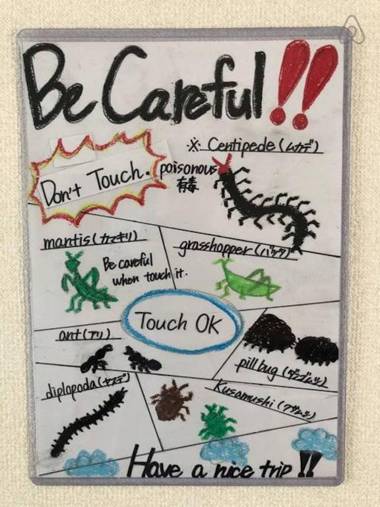 Be Careful!!
※ Centipede(ムカデ)
Don't Touch.
poisonous
有毒
mantis(カマキリ)
Be careful
when touch it.
grasshopper(バッタ)
Touch OK
ant(アリ)
pill bug(ダンゴムシ)
diplopoda(ヤスデ)
Kusamushi(クサムシ)
Have a nice trip!!